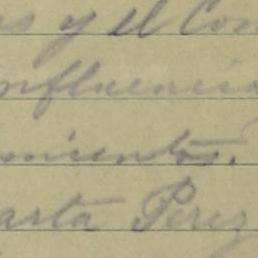 y el Con
nfluencia
mientos.
arta Perez